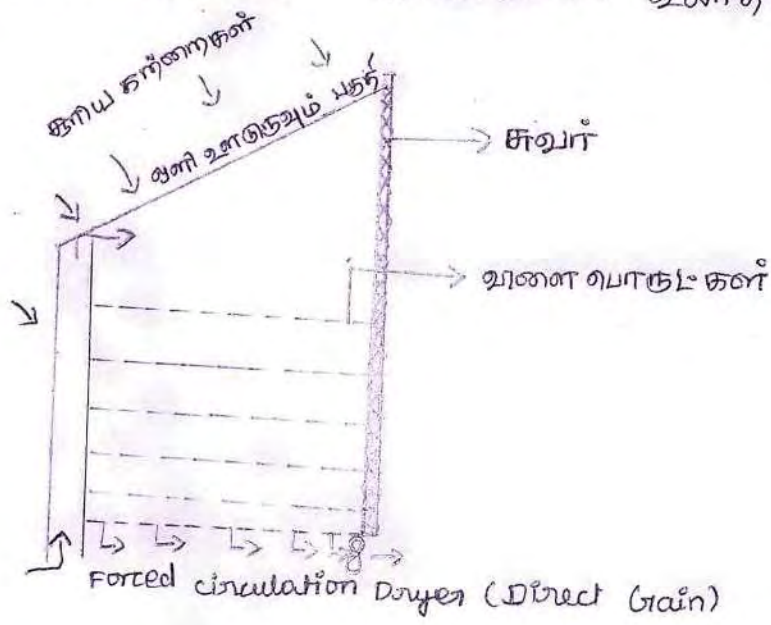 சூரிய கற்றைகள்
ஒளி ஊடுருவும் பகுதி
சுவர்
விளை பொருட்கள்
Forced circulation Dryer (Direct Gain)